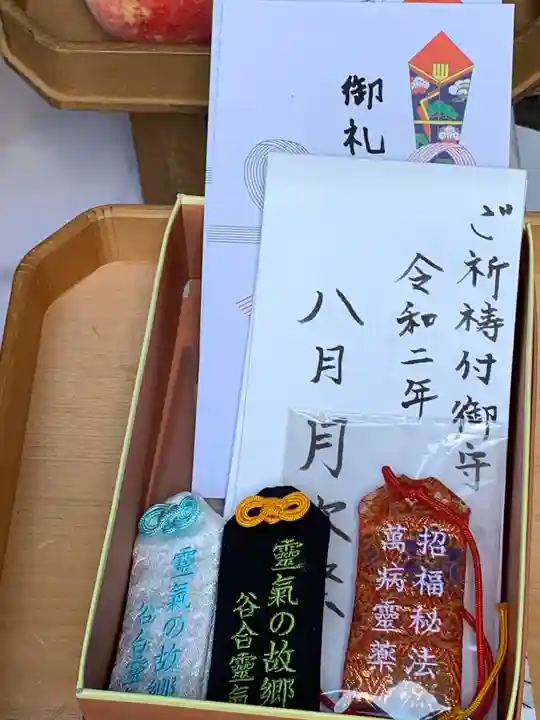 御礼
ご祈祷付御守
令和二年
八月月次祭
靈氣の故郷
谷合靈
靈氣の故郷
谷合靈氣
招福秘法
萬病靈薬